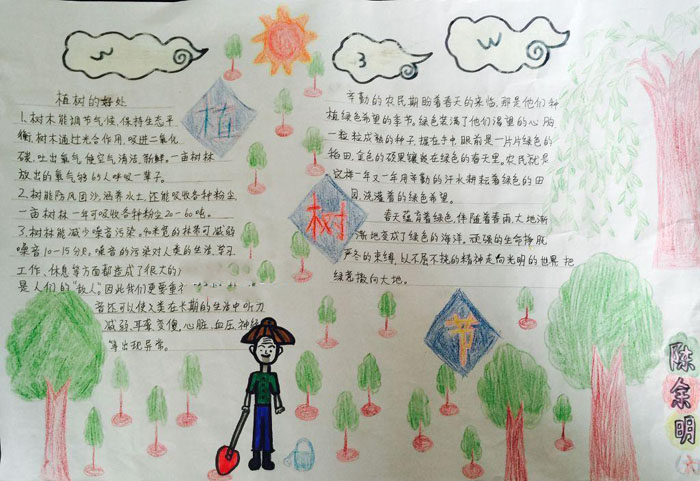 植树的好处
1.树木能调节气候,保持生态平
衡.树木通过光合作用,吸进二氧化
碳,吐出氧气,使空气清洁、新鲜。一亩树林
放出的氧气够65人呼吸一辈子。
2.树能防风固沙,涵养水土,还能吸收各种粉尘
一亩树林一年可吸收各种粉尘20-60吨。
3.树林能减少噪音污染。40米宽的林带可减弱
噪音10-15分贝。噪音的污染对人类的生活、学习
工作、休息等方面都造成了很大的
是人们的“敌人”因此我们更要重
音还可以使人类在长期的生活中听力
减弱、耳聋变傻、心脏、血压、神经
等出现异常。
植
树
节
辛勤的农民期盼着春天的来临,那是他们种
植绿色希望的季节,绿色装满了他们渴望的心脏,
一粒粒成熟的种子,握在手中,眼前是一片片绿色的
稻田,金色的硕果镶嵌在绿色的春天里。农民就是
这样一年又一年用辛勤的汗水耕耘着绿色的田
园,浇灌着的绿色希望。
春天蕴育着绿色,伴随着春雨,大地渐
渐地变成了绿色的海洋,顽强的生命挣脱
严冬的束缚,以不屈不挠的精神走向光明的世界,把
绿意撒向大地。
3
陈
余
明